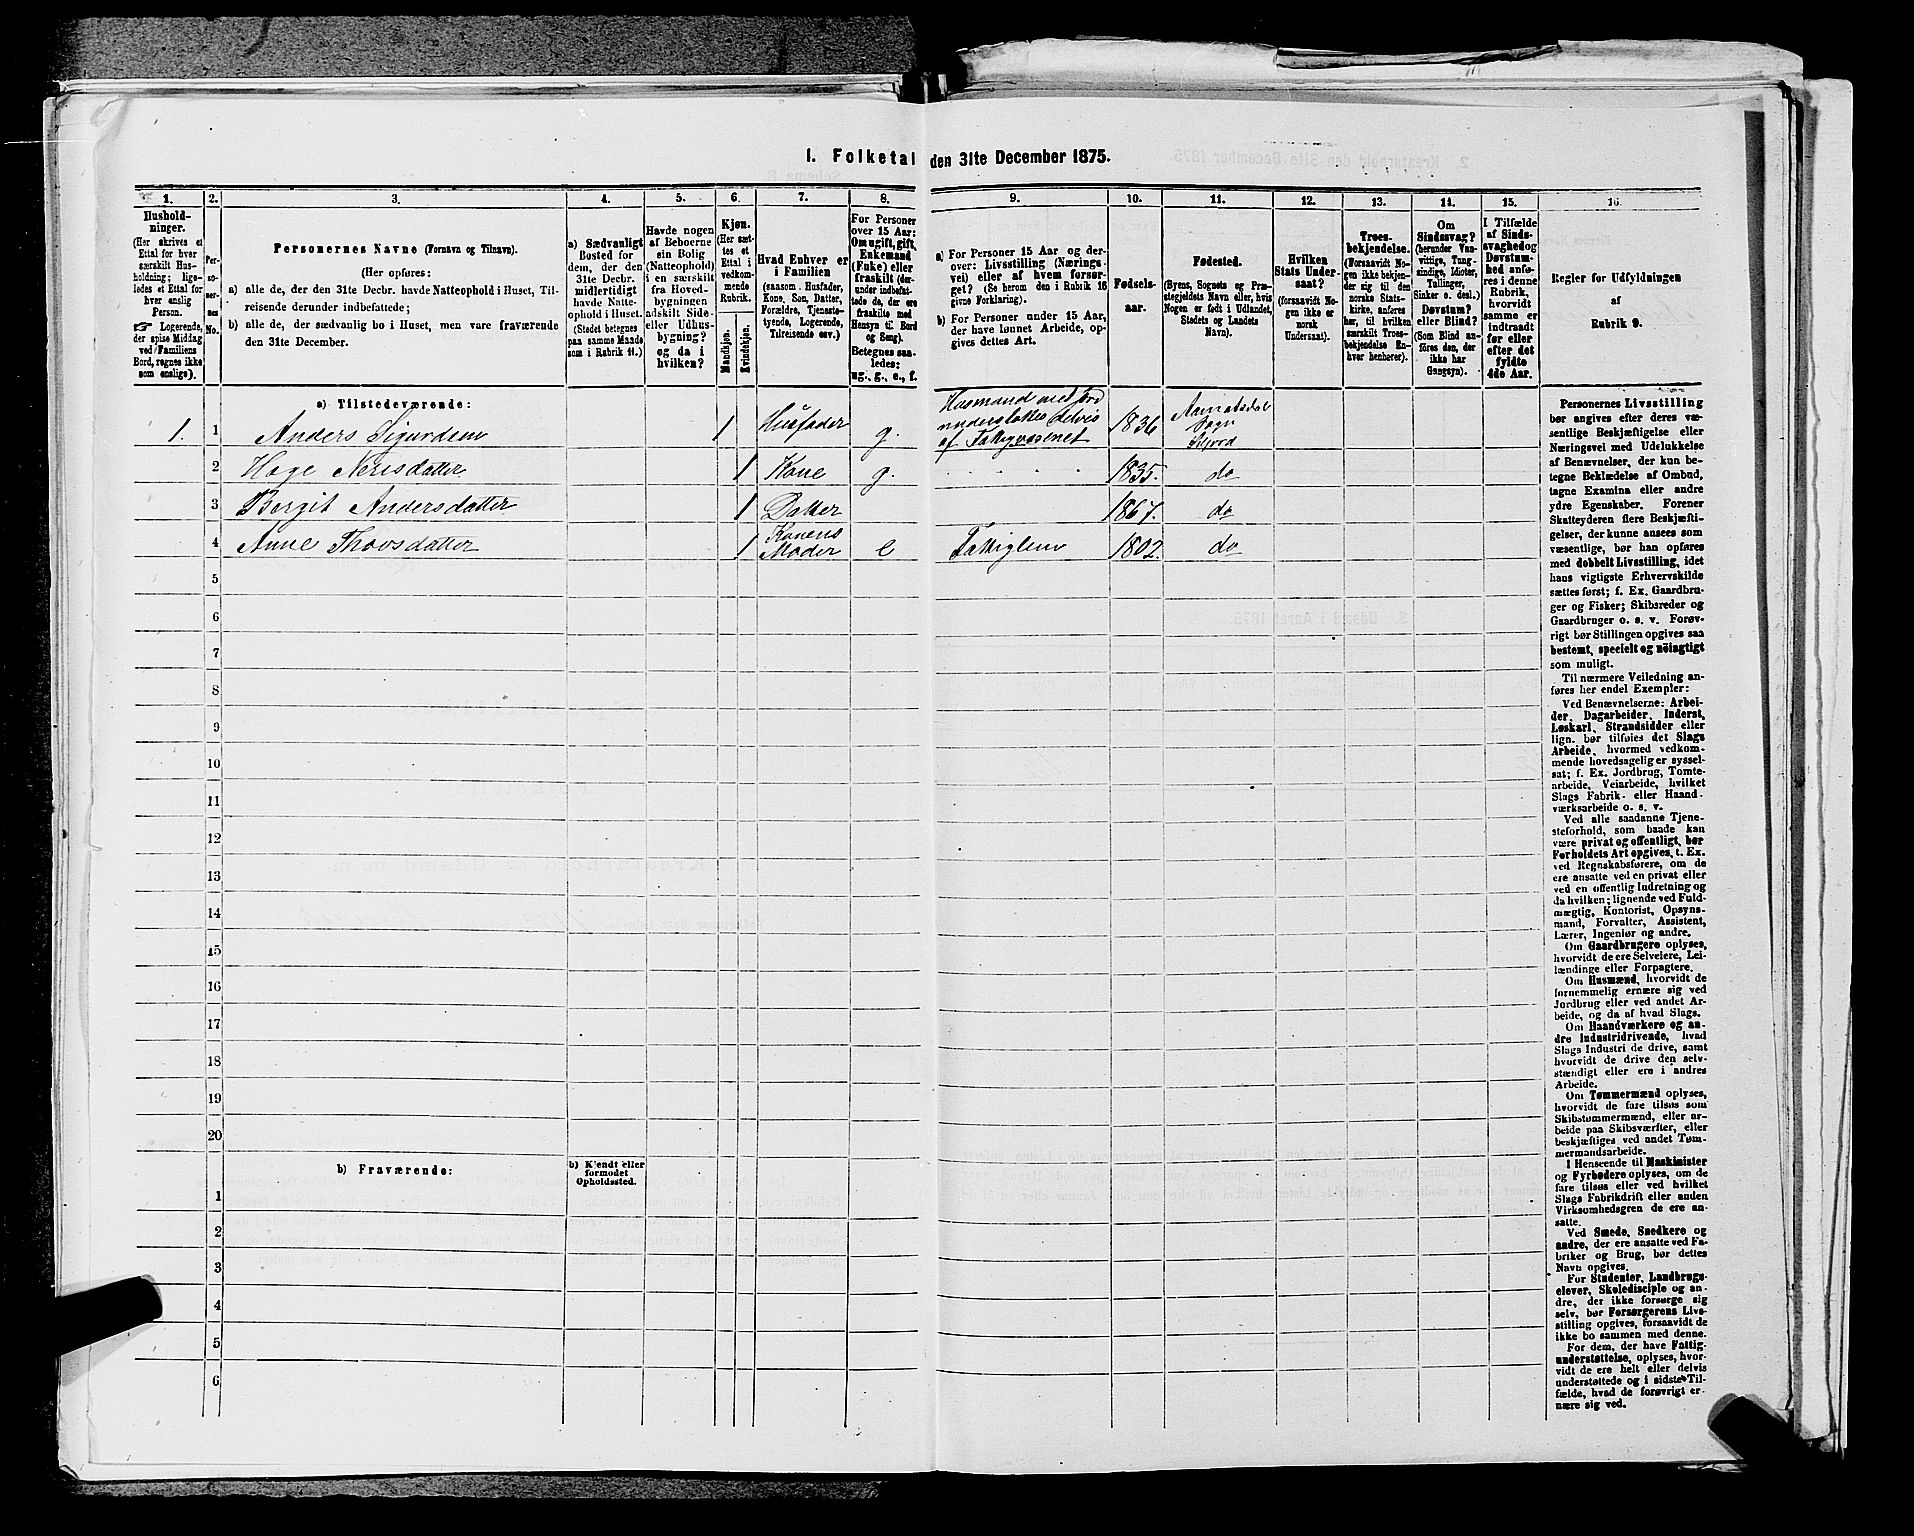 1. Folketal den 31te December 1875.
1.
Hushold-
ninger.
(Her skrives et
Ettal for hver
særskilt Hus-
holdning; lige-
ledes et Ettal for
hver enslig
Person.
☞ Logerende,
der spise Middag
ved Familiens
Bord, regnes ikke
som enslige).
2.
Per-
so-
ner-
nes
No.
3.
Personernes Navne (Fornavn og Tilnavn).
(Her opføres:
a) alle de, der den 31te Decbr. havde Natteophold i Huset, Til-
reisende derunder indbefattede;
b) alle de, der sædvanlig bo i Huset, men vare fraværende
den 31te December.
4.
a) Sædvanligt
Bosted for
dem, der den
31te Decbr.
midlertidigt
havde Natte-
ophold i Huset.
(Stedet betegnes
paa samme Maade
som i Rubrik 11.)
5.
Havde nogen
af Beboerne
sin Bolig
(Natteophold)
i en særskilt
fra Hoved-
bygningen
adskilt Side-
eller Udhus-
bygning?
og da i
hvilken?
6.
Kjøn.
(Her sæt-
tes et
Ettal i
vedkom-
mende
Rubrik.
Mandkjøn.
Kvindekjøn.
7.
Hvad Enhver er
i Familien
(saasom Husfader,
Kone, Søn, Datter,
Forældre, Tjeneste-
tyende, Logerende,
Tilreisende osv.)
8.
For Personer
over 15 Aar:
Om ugift, gift,
Enkemand
(Enke) eller
fraskilt (der-
under indbefat-
tede de, der ere
fraskilte med
Hensyn til Bord
og Seng).
Betegnes saa-
ledes:
ug., g., e., f.
9.
a) For Personer 15 Aar og der-
over: Livsstilling (Nærings-
vei) eller af hvem forsør-
get? (Se herom den i Rubrik 16
givne Forklaring).
b) For Personer under 15 Aar,
der have lønnet Arbeide, op-
gives dettes Art.
10.
Fødsels-
aar.
11.
Fødested.
(Byens, Sognets og Præ-
stegjeldets Navn eller, hvis
Nogen er født i Udlandet,
Stedets og Landets
Navn).
12.
Hvilken
Stats Under-
saat?
(forsaavidt No-
gen ikke er
norsk
Undersaat).
13.
Troes-
bekjendelse.
(Forsaavidt No-
gen ikke bekjen-
der sig til den
norske Stats-
kirke, anføres
her, til hvilken
særskilt Troes-
bekjendelse En-
hver henhører).
14.
Om
Sindssvag?
(herunder Van-
vittige, Tung-
sindige, Idioter,
Tullinger,
Sinker o. desl.)
Døvstum?
eller Blind?
(Som Blind an-
føres den, der
ikke har
Gangsyn).
15.
I Tilfælde
af Sinds-
svaghed og
Døvstum-
hed anfø-
res i denne
Rubrik,
hvorvidt
samme er
indtraadt
før eller
efter det
fyldte
4de Aar.
16.
Regler for Udfyldningen
af
Rubrik 9.
a) Tilstedeværende:
1. 1 Anders Sigurdsen 1 Husfader g. Husmand med Jord
understøttes delvis
af Fattigvæsenet 1836 Aamotsdal
Sogn
2 Hæge Nerisdatter 1 Kone g. 1835. do
3 Bergit Andersdatter 1 Datter 1867. do
4 Anne Thovsdatter 1 Konens
Moder e Fattiglem 1802. do
5
6
7
8
9
10
11
12
13
14
15
16
17
18
19
20
b) Fraværende:
b) Kjendt eller
formodet
Opholdssted.
1
2
3
4
5
6
Personernes Livsstilling
bør angives efter deres væ-
sentlige Beskjæftigelse eller
Næringsvei med Udelukkelse
af Benævnelser, der kun be-
tegne Beklædelse af Ombud,
tagne Examina eller andre
ydre Egenskaber. Forener
Skatteyderen flere Beskjæfti-
gelser, der kunne ansees som
væsentlige, bør han opføres
med dobbelt Livsstilling, idet
hans vigtigste Erhvervskilde
sættes først; f. Ex. Gaardbru-
ger og Fisker; Skibsreder og
Gaardbruger o. s. v. Forøv-
rigt bør Stillingen opgives saa
bestemt, specielt og nöiagtigt
som muligt.
Til nærmere Veiledning an-
føres her endel Exempler:
Ved Benævnelserne: Arbei-
der, Dagarbeider, Inderst,
Løskarl, Strandsidder eller
lign. bør tilføies det Slags
Arbeide, hvormed vedkom-
mende hovedsagelig er syssel-
sat; f. Ex. Jordbrug, Tomte-
arbeide, Veiarbeide, hvilket
Slags Fabrik- eller Haand-
værksarbeide o. s. v.
Ved alle saadanne Tjene-
steforhold, som baade kan
være privat og offentligt, bør
Forholdets Art opgives, t. Ex.
ved Regnskabsførere, om de
ere ansatte ved en privat eller
ved en offentlig Indretning og
da hvilken; lignende ved Fuld-
mægtig, Kontorist, Opsyns-
mand, Forvalter, Assistent,
Lærer, Ingeniør og andre.
Om Gaardbrugere oplyses,
hvorvidt de ere Selveiere, Lei-
lændinge eller Forpagtere.
Om Husmænd, hvorvidt de
fornemmelig ernære sig ved
Jordbrug eller ved andet Ar-
beide, og da af hvad Slags.
Om Haandværkere og an-
dre Industridrivende, hvad
Slags Industri de drive, samt
hvorvidt de drive den selv-
stændigt eller ere i andres
Arbeide.
Om Tømmermænd oplyses,
hvorvidt de fare tilsøs som
Skibstømmermænd, eller ar-
beide paa Skibsværfter, eller
beskjæftiges ved andet Tøm-
mermandsarbeide.
I Henseende til Maskinister
og Fyrbødere oplyses, om de
fare tilsøs eller ved hvilket
Slags Fabrikdrift eller anden
Virksomhedsgren de ere an-
satte.
Ved Smede, Snedkere og
andre, der ere ansatte ved Fa-
briker og Brug, bør dettes
Navn opgives.
For Studenter, Landbrugs-
elever, Skoledisciple og an-
dre, der ikke forsørge sig
selv, bør Forsørgerens Livs-
stilling opgives, forsaavidt de
ikke bo sammen med denne.
For dem, der have Fattig-
understøttelse, oplyses, hvor-
vidt de ere helt eller delvis
understøttede og i sidste Til-
fælde, hvad de forøvrigt er-
nære sig ved.